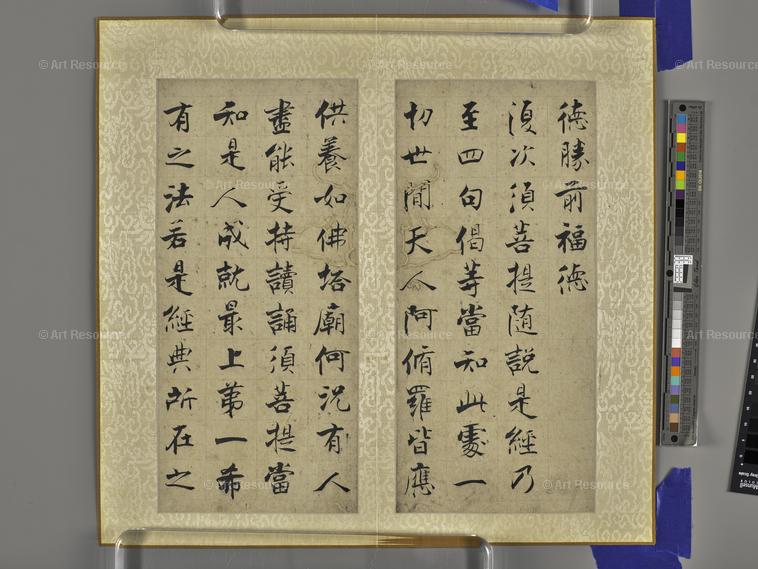 德勝前福德
復次須菩提随說是經乃
至四句偈等當知此處一
切世間天人阿脩羅皆應
供養如佛塔廟何況有人
盡能受持讀誦須菩提當
知是人成就最上第一希
有之法若是經典所在之
© Art Resource